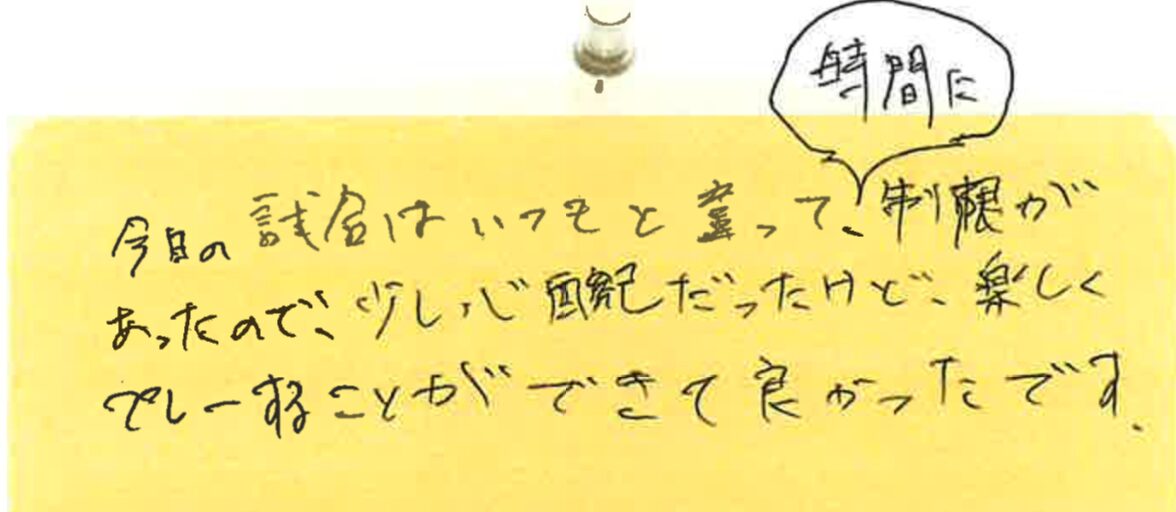 時間に
今日の試合はいつもと違って、制限が
あったので、少し心配だったけど、楽しく
プレーすることができて良かったです.